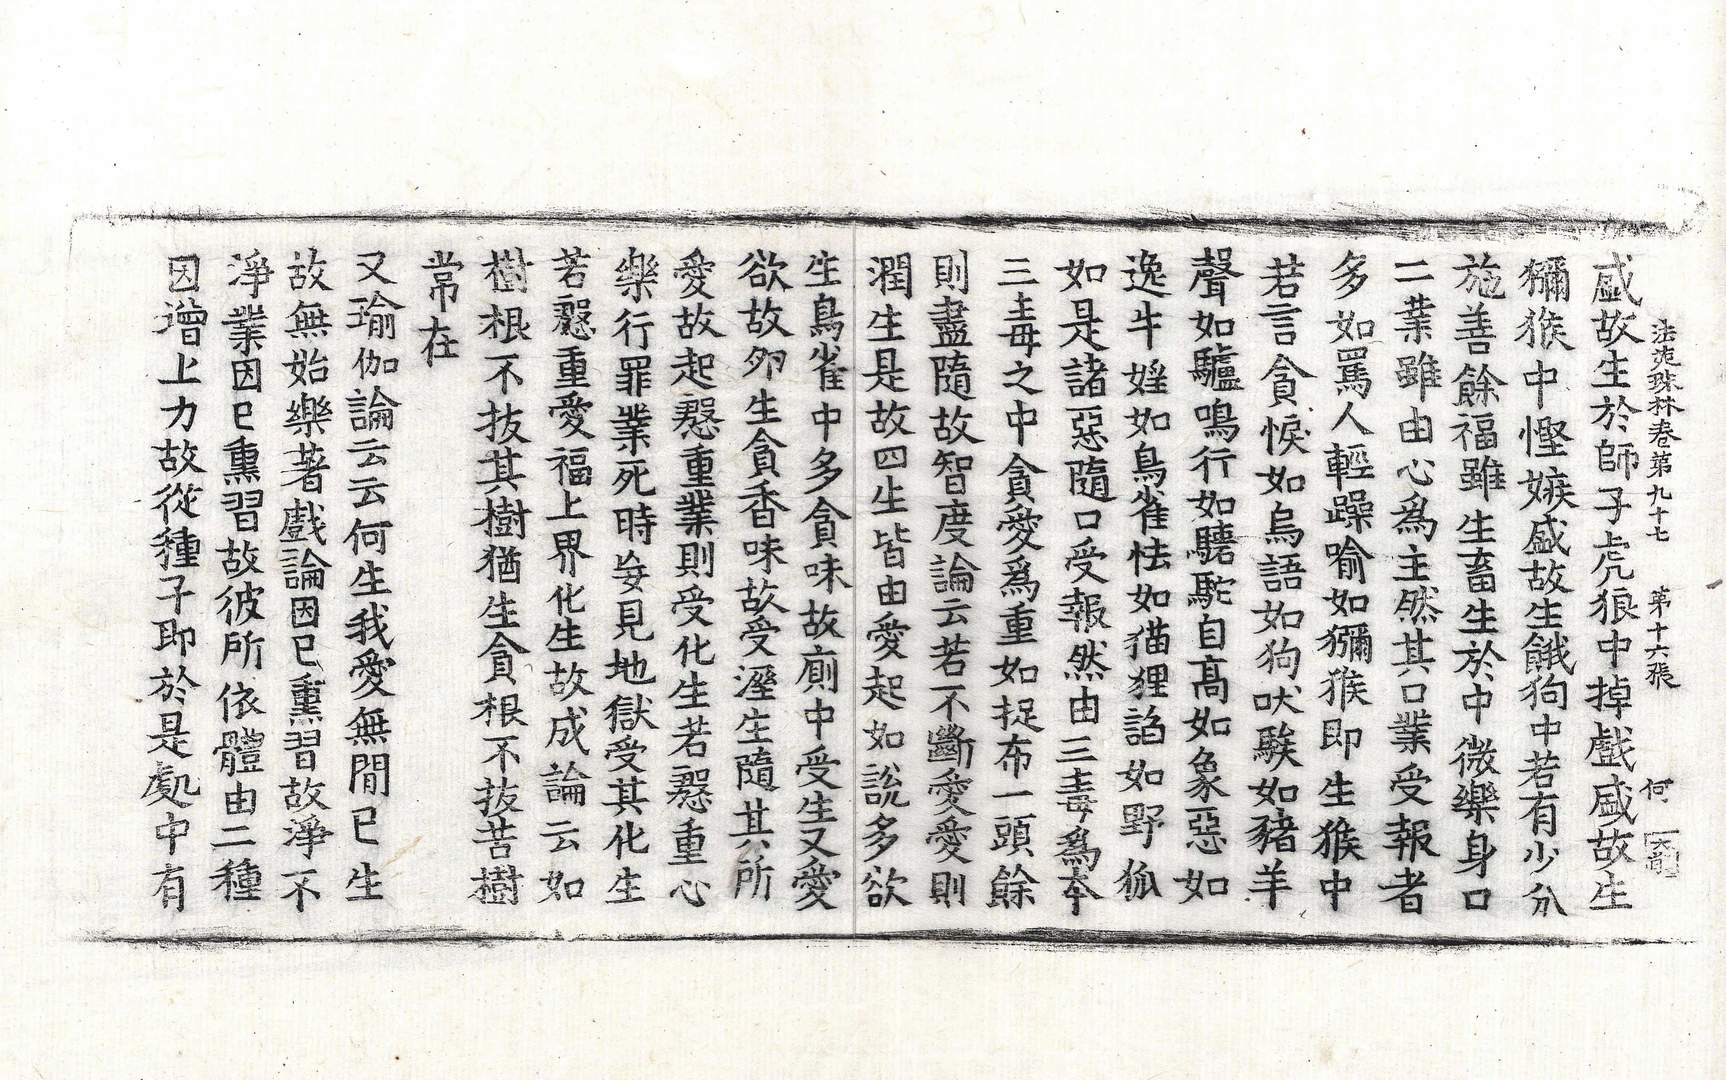 法苑珠林卷第九十七 第十六張 何
盛故生於師子虎狼中掉戲盛故生
獼猴中慳嫉盛故生餓狗中若有少分
施善餘福雖生畜生於中微樂身口
二業雖由心爲主然其口業受報者
多如罵人輕躁喻如獼猴即生猴中
若言貪悷如烏語如狗吠騃如豬羊
聲如驢鳴行如驝駝自髙如象惡如
逸牛婬如鳥雀怯如猫狸諂如野狐
如是諸惡隨口受報然由三毒爲本
三毒之中貪愛爲重如捉布一頭餘
則盡隨故智度論云若不斷愛愛則
潤生是故四生皆由愛起如說多欲
生鳥雀中多貪味故廁中受生又愛
欲故夘生貪香味故受溼生隨其所
愛故起慇重業則受化生若慇重心
樂行罪業死時妄見地獄受其化生
若慇重愛福上界化生故成論云如
樹根不拔其樹猶生貪根不拔苦樹
常在
又瑜伽論云云何生我愛無間已生
故無始樂著戲論因已熏習故淨不
淨業因已熏習故彼所依體由二種
因增上力故從種子即於是處中有